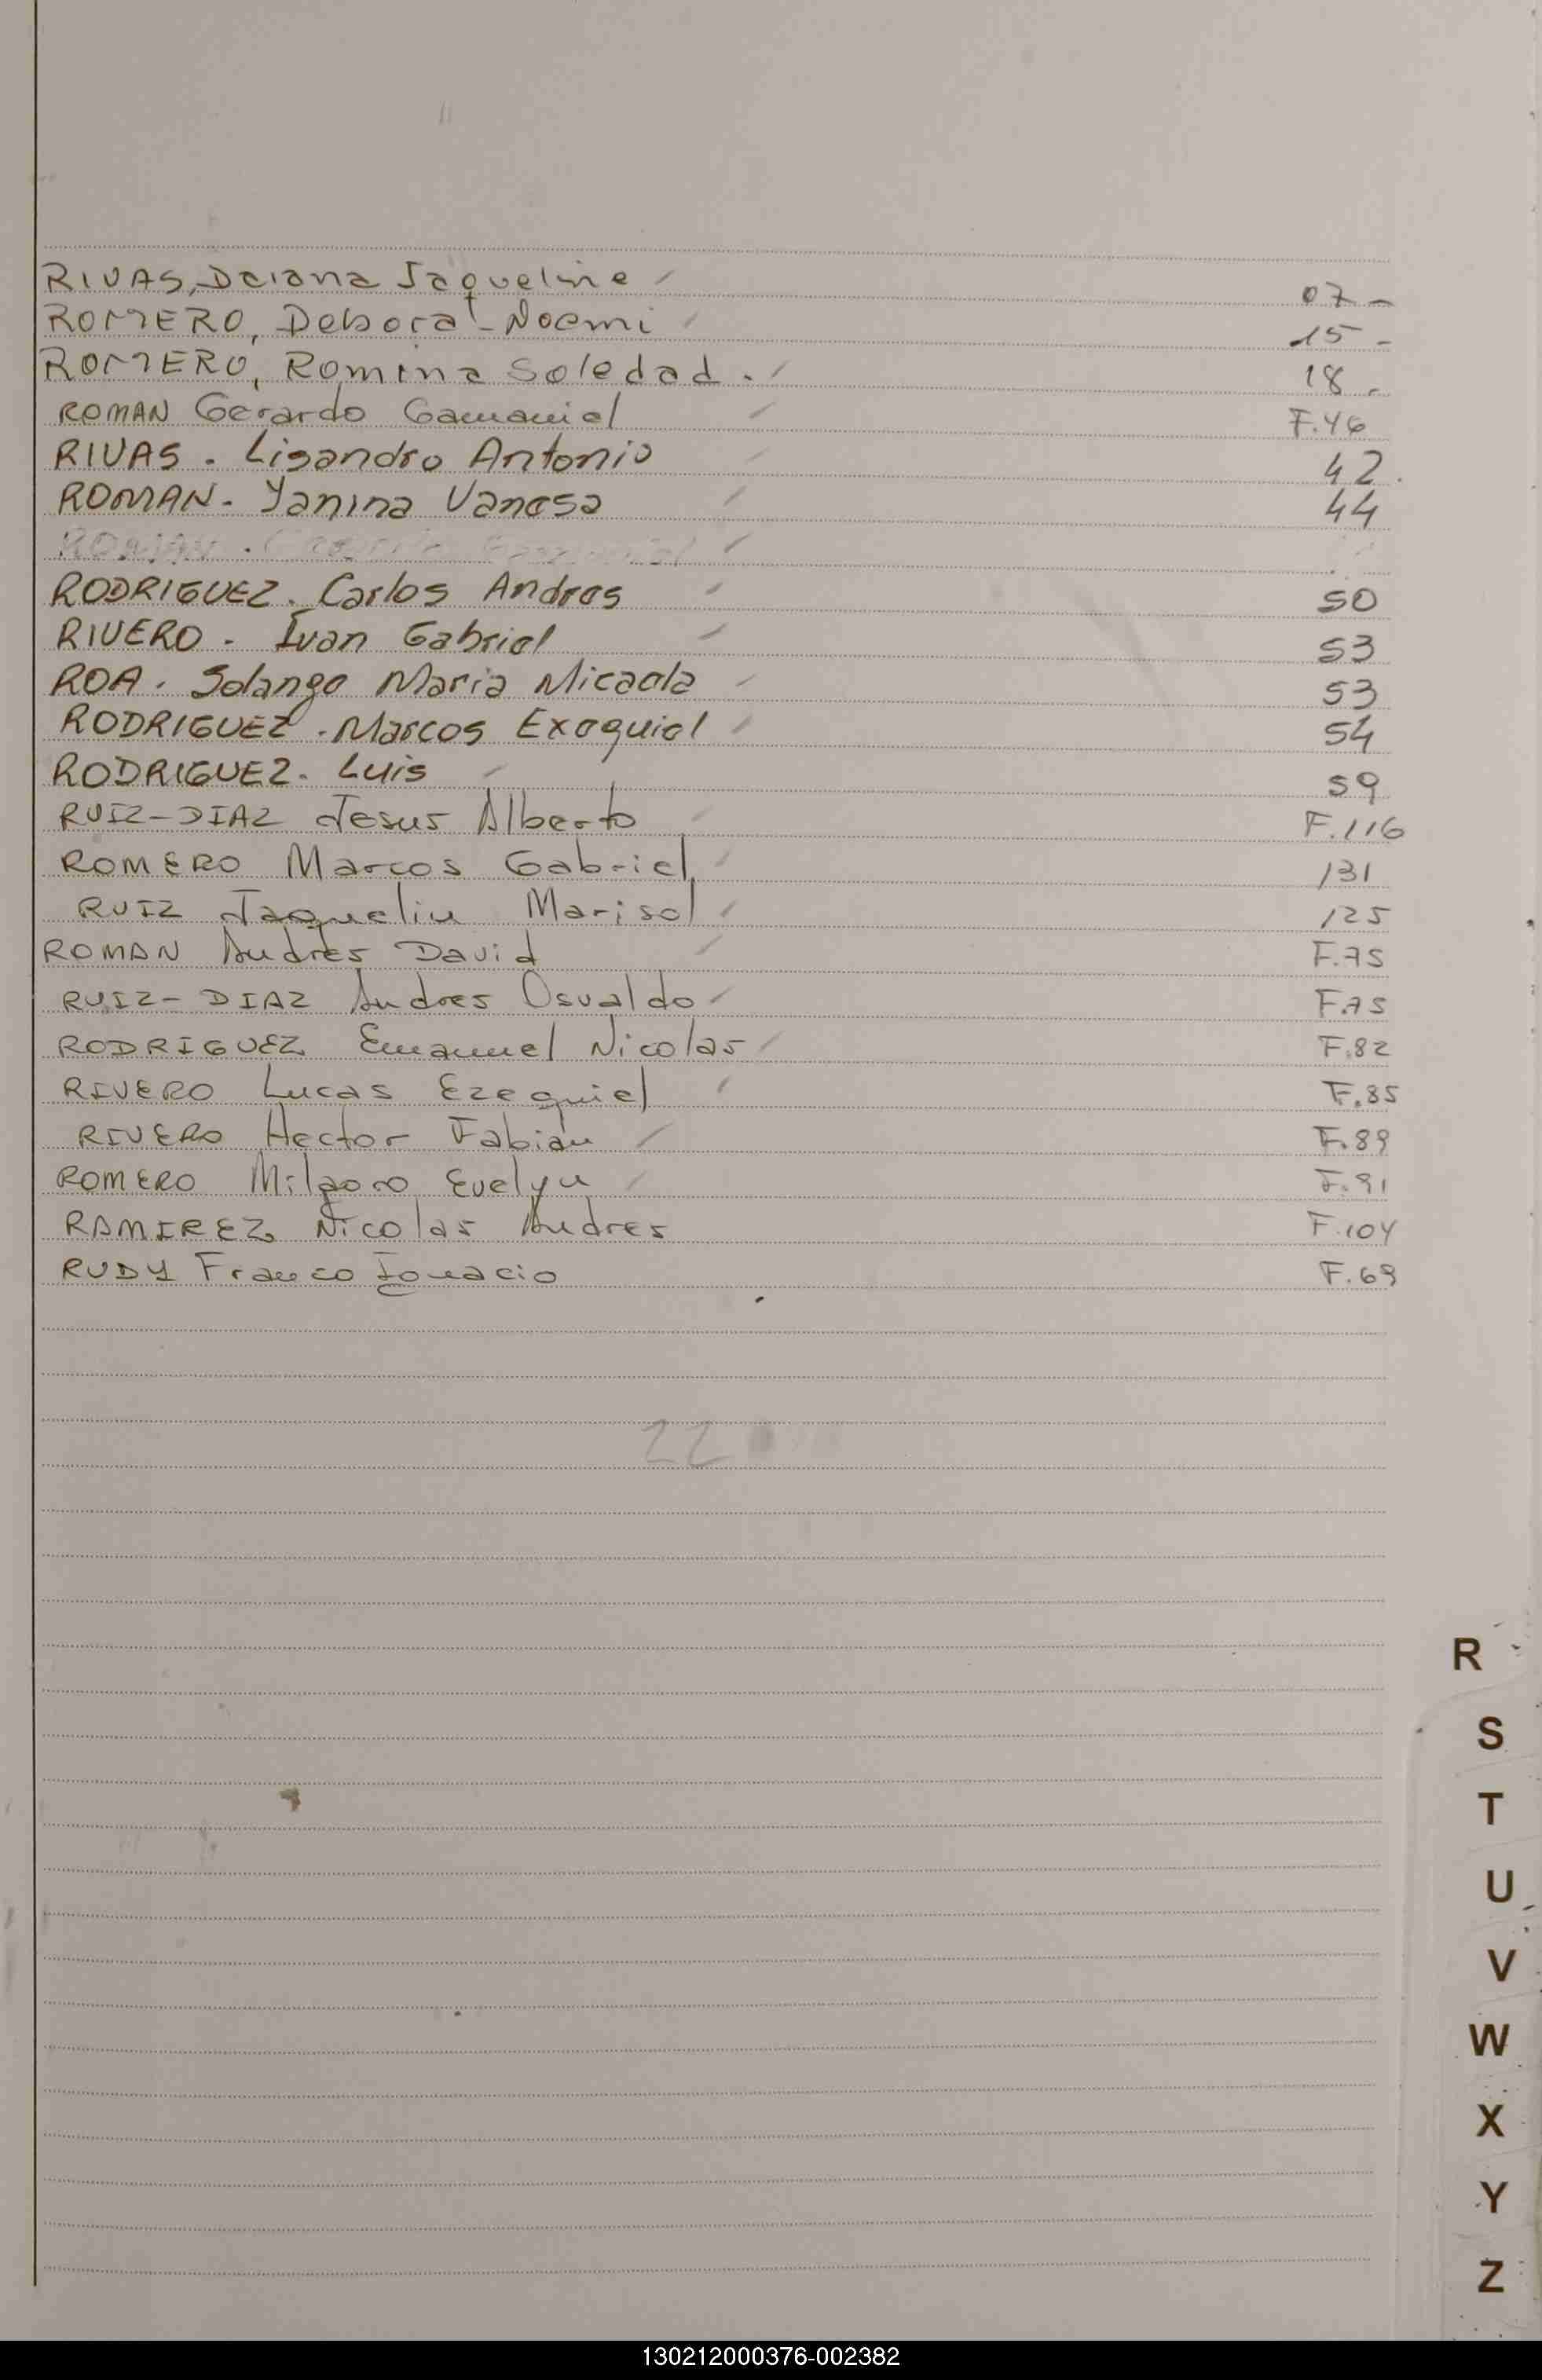 RIVAS, Daiana Jaqueline 07 -
ROMERO, Debora Noemi 15 -
ROMERO, Romina Soledad. 18 -
ROMAN Gerardo Gamaniel F.46
RIVAS. Lisandro Antonio 42.
ROMAN- Yanina Vanesa 44
ROMAN.
RODRIGUEZ. Carlos Andres 50
RIVERO - Ivan Gabriel 53
ROA. Solange Maria Micaela 53
RODRIGUEZ. Marcos Exequiel 54
RODRIGUEZ. Luis 59
RUIZ-DIAZ Jesus Alberto F.116
ROMERO Marcos Gabriel 131
RUIZ Jaquelin Marisol 125
ROMAN Andres David F.75
RUIZ-DIAZ Andres Osvaldo F.75
RODRIGUEZ Emanuel Nicolas F.82
RIVERO Lucas Ezequiel F.85
RIVERO Hector Fabian F.89
ROMERO Milagro Evelyn F.91
RAMIREZ Nicolas Andres F.104
RUDY Franco Ignacio F.69
22
R
S
T
U
V
W
X
Y
Z
130212000376-002382